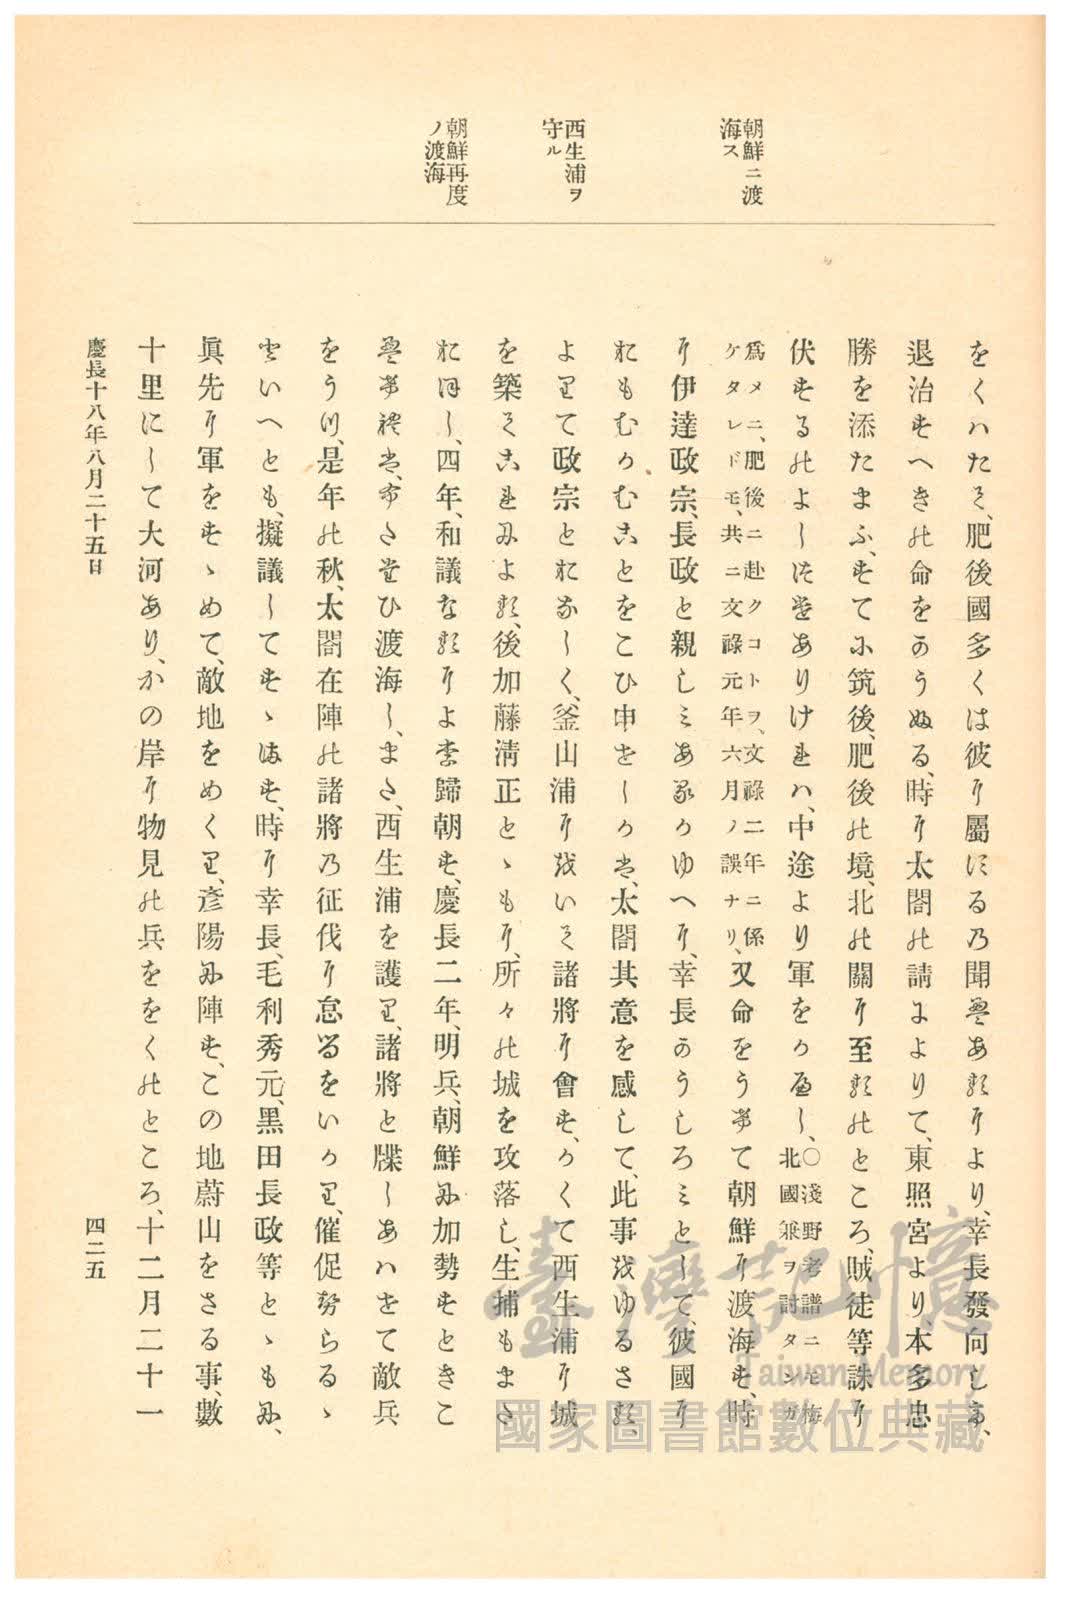 朝鮮ニ渡
海ス
西生浦ヲ
守ル
朝鮮再度
ノ渡海
をくハたて、肥後國多くは彼に屬にるの聞えあるにより、幸長發向しか、
退治すへきの命をかうぬる、時に太閤の請によりて、東照宮より本多忠
勝を添たまふ、すてに筑後、肥後の境、北の關に至るのところ、賊徒等誅に
伏するのよし注進ありけれハ、中途より軍をかへし、〇淺野考譜ニモ梅
北國兼ヲ討タンガ
爲メニ、肥後ニ赴クコトヲ、文祿二年ニ係
ケタレドモ、共ニ文祿元年六月ノ誤ナリ、又命をうけて朝鮮に渡海す、時
に伊達政宗、長政と親しミあるかゆへに、幸長のうしろミとして、彼國に
おもむかむことをこひ申せしかは、太閤其意を感して、此事をゆるさる、
よりて政宗とおなしく、釜山浦にをいて諸將に會す、かくて西生浦に城
を築てこれによる、後加藤淸正とゝもに、所々の城を攻落し、生捕もまた
おほし、四年、和議なるによ李歸朝す、慶長二年、明兵、朝鮮に加勢すときこ
えけれは、ふたたひ渡海し、また、西生浦を護り、諸將と牒しあハせて敵兵
をうつ、是年の秋、太閤在陣の諸將の征伐に怠るをいかり、催促努らるゝ
といへとも、擬議してすゝます、時に幸長、毛利秀元、黑田長政等とゝもに、
眞先に軍をすゝめて、敵地をめくり、彥陽に陣す、この地蔚山をさる事、數
十里にして大河あり、かの岸に物見の兵ををくのところ、十二月二十一
慶長十八年八月二十五日
四二五
臺灣記憶
Taiwan Memory
國家圖書館數位典藏